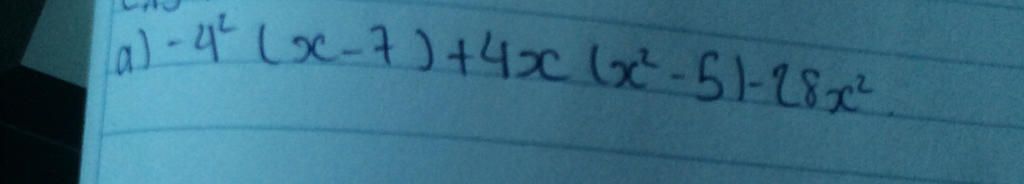 a) -4² (x-7) + 4x (x² - 5) - 28x²